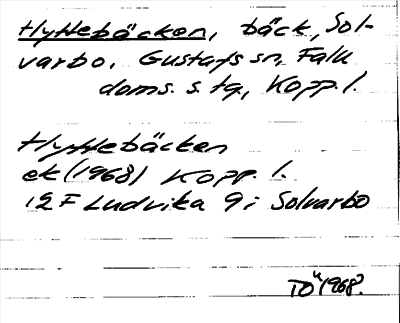 Hyttebäcken, bäck, Sol-
varbo, Gustafs sn, Falu
doms. s. tg, Kopp. l.
Hyttebäcken
ek (1968) Kopp. l.
12 F Ludvika 9 i Solvarbo
TÖ 1968.